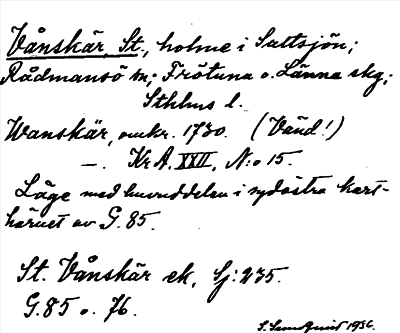 Vånskär, St., holme i Saltsjön;
Rådmansö sn; Frötuna o. Länna skg;
Sthlms l.
Wanskär, omkr. 1730. (Vänd!)
—. Kr A. XXII, N:o 15.
Läge med huvuddelen i sydöstra kart-
hörnet av G. 85.
St. Vånskär ek, Sj: 235.
G. 85 o. 76.
S. Sundquist 1936.